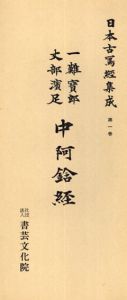 日本古写経集成 第一巻
一難寶郎
丈部濱足
中阿鋡経
社団法人 書芸文化院